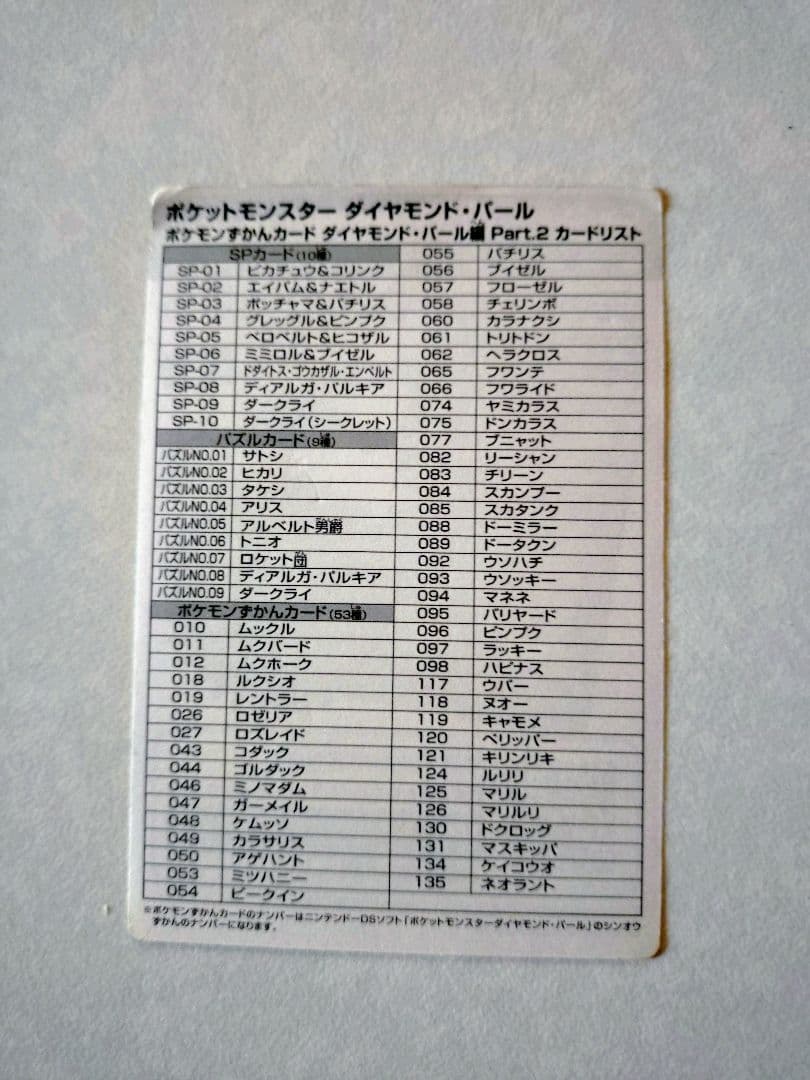 ポケットモンスター ダイヤモンド・パール
ポケモンずかんカード ダイヤモンド・パール編 Part.2 カードリスト
SPカード(10種)
SP-01 ピカチュウ&コリンク
SP-02 エイパム&ナエトル
SP-03 ポッチャマ&パチリス
SP-04 グレッグル&ピンプク
SP-05 ベロベルト&ヒコザル
SP-06 ミミロル&ブイゼル
SP-07 ドダイトス・ゴウカザル・エンペルト
SP-08 ディアルガ・パルキア
SP-09 ダークライ
SP-10 ダークライ(シークレット)
パズルカード(9種)
パズルNO.01 サトシ
パズルNO.02 ヒカリ
パズルNO.03 タケシ
パズルNO.04 アリス
パズルNO.05 アルベルト男爵
パズルNO.06 トニオ
パズルNO.07 ロケット団
パズルNO.08 ディアルガ・パルキア
パズルNO.09 ダークライ
ポケモンずかんカード(53種)
010 ムックル
011 ムクバード
012 ムクホーク
018 ルクシオ
019 レントラー
026 ロゼリア
027 ロズレイド
043 コダック
044 ゴルダック
046 ミノマダム
047 ガーメイル
048 ケムッソ
049 カラサリス
050 アゲハント
053 ミツハニー
054 ビークイン
055 パチリス
056 ブイゼル
057 フローゼル
058 チェリンボ
060 カラナクシ
061 トリトドン
062 ヘラクロス
065 フワンテ
066 フワライド
074 ヤミカラス
075 ドンカラス
077 ブニャット
082 リーシャン
083 チリーン
084 スカンプー
085 スカタンク
088 ドーミラー
089 ドータクン
092 ウソハチ
093 ウソッキー
094 マネネ
095 バリヤード
096 ピンプク
097 ラッキー
098 ハピナス
117 ウパー
118 ヌオー
119 キャモメ
120 ペリッパー
121 キリンリキ
124 ルリリ
125 マリル
126 マリルリ
130 ドクロッグ
131 マスキッパ
134 ケイコウオ
135 ネオラント
※ポケモンずかんカードのナンバーはニンテンドーDSソフト「ポケットモンスターダイヤモンド・パール」のシンオウ
ずかんのナンバーになります。